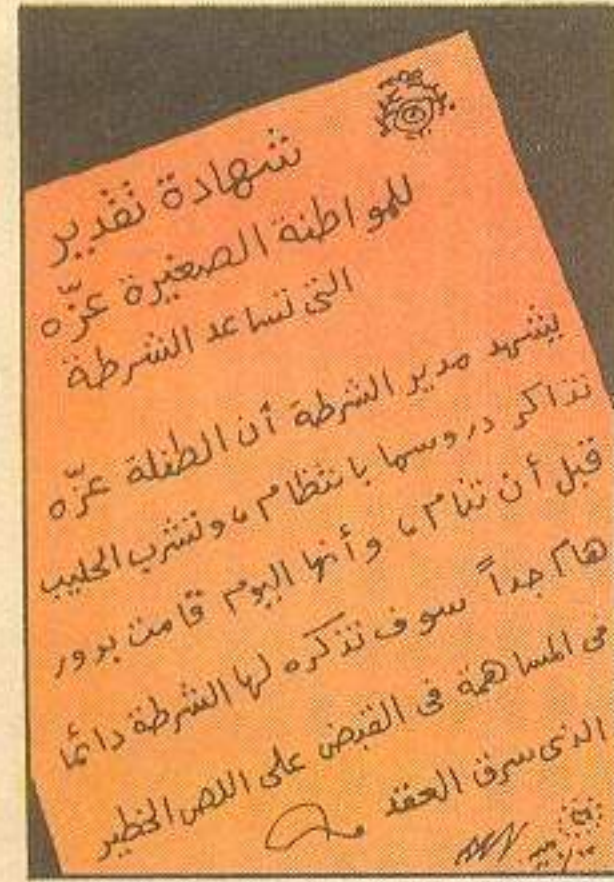 شهادة تقدير
للمواطنة الصغيرة عزّه
التى تساعد الشرطة
يشهد مدير الشرطة أن الطفلة عزّه
تذاكر دروسها بانتظام، وتشرب الحليب
قبل أن تنام، وأنها اليوم قامت بدور
هام جداً سوف تذكره لها الشرطة دائمًا
فى المساهمة فى القبض على اللص الخطير
الذى سرق العقد